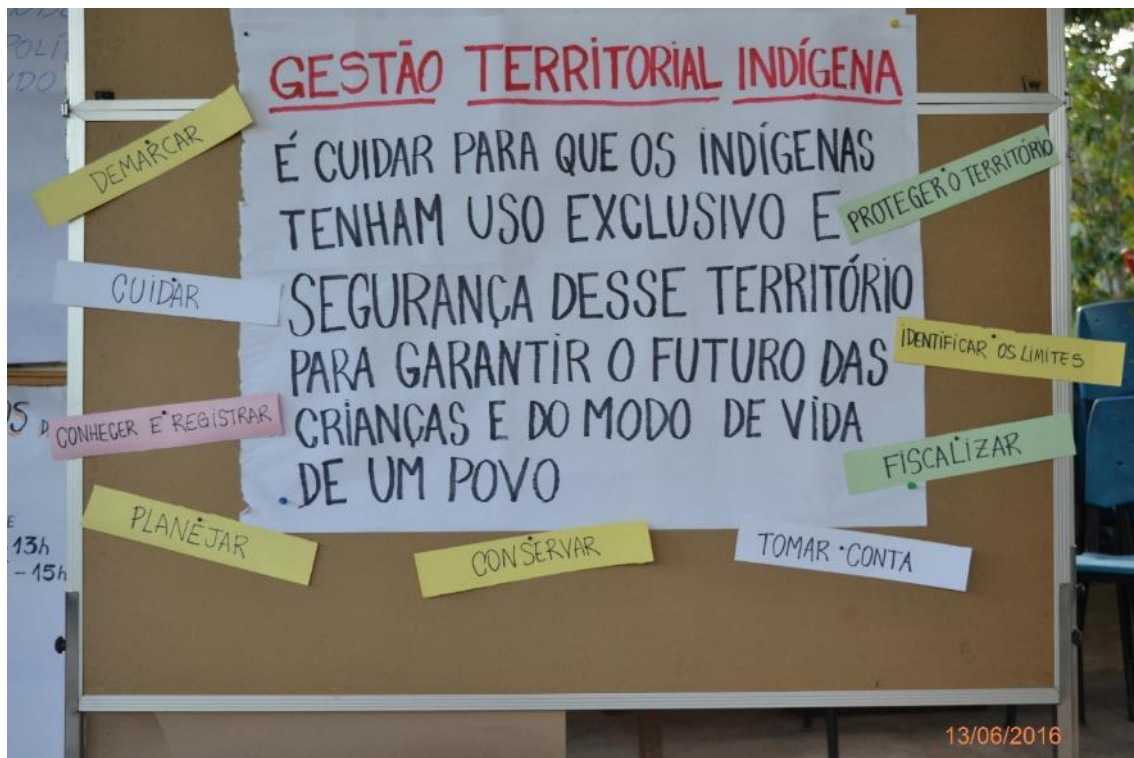 GESTÃO TERRITORIAL INDÍGENA
É CUIDAR PARA QUE OS INDÍGENAS
TENHAM USO EXCLUSIVO E
SEGURANÇA DESSE TERRITÓRIO
PARA GARANTIR O FUTURO DAS
CRIANÇAS E DO MODO DE VIDA
DE UM POVO
DEMARCAR
CUIDAR
CONHECER E REGISTRAR
PLANEJAR
CONSERVAR
TOMAR CONTA
FISCALIZAR
IDENTIFICAR OS LIMITES
PROTEGER O TERRITÓRIO
13h
- 15h
13/06/2016